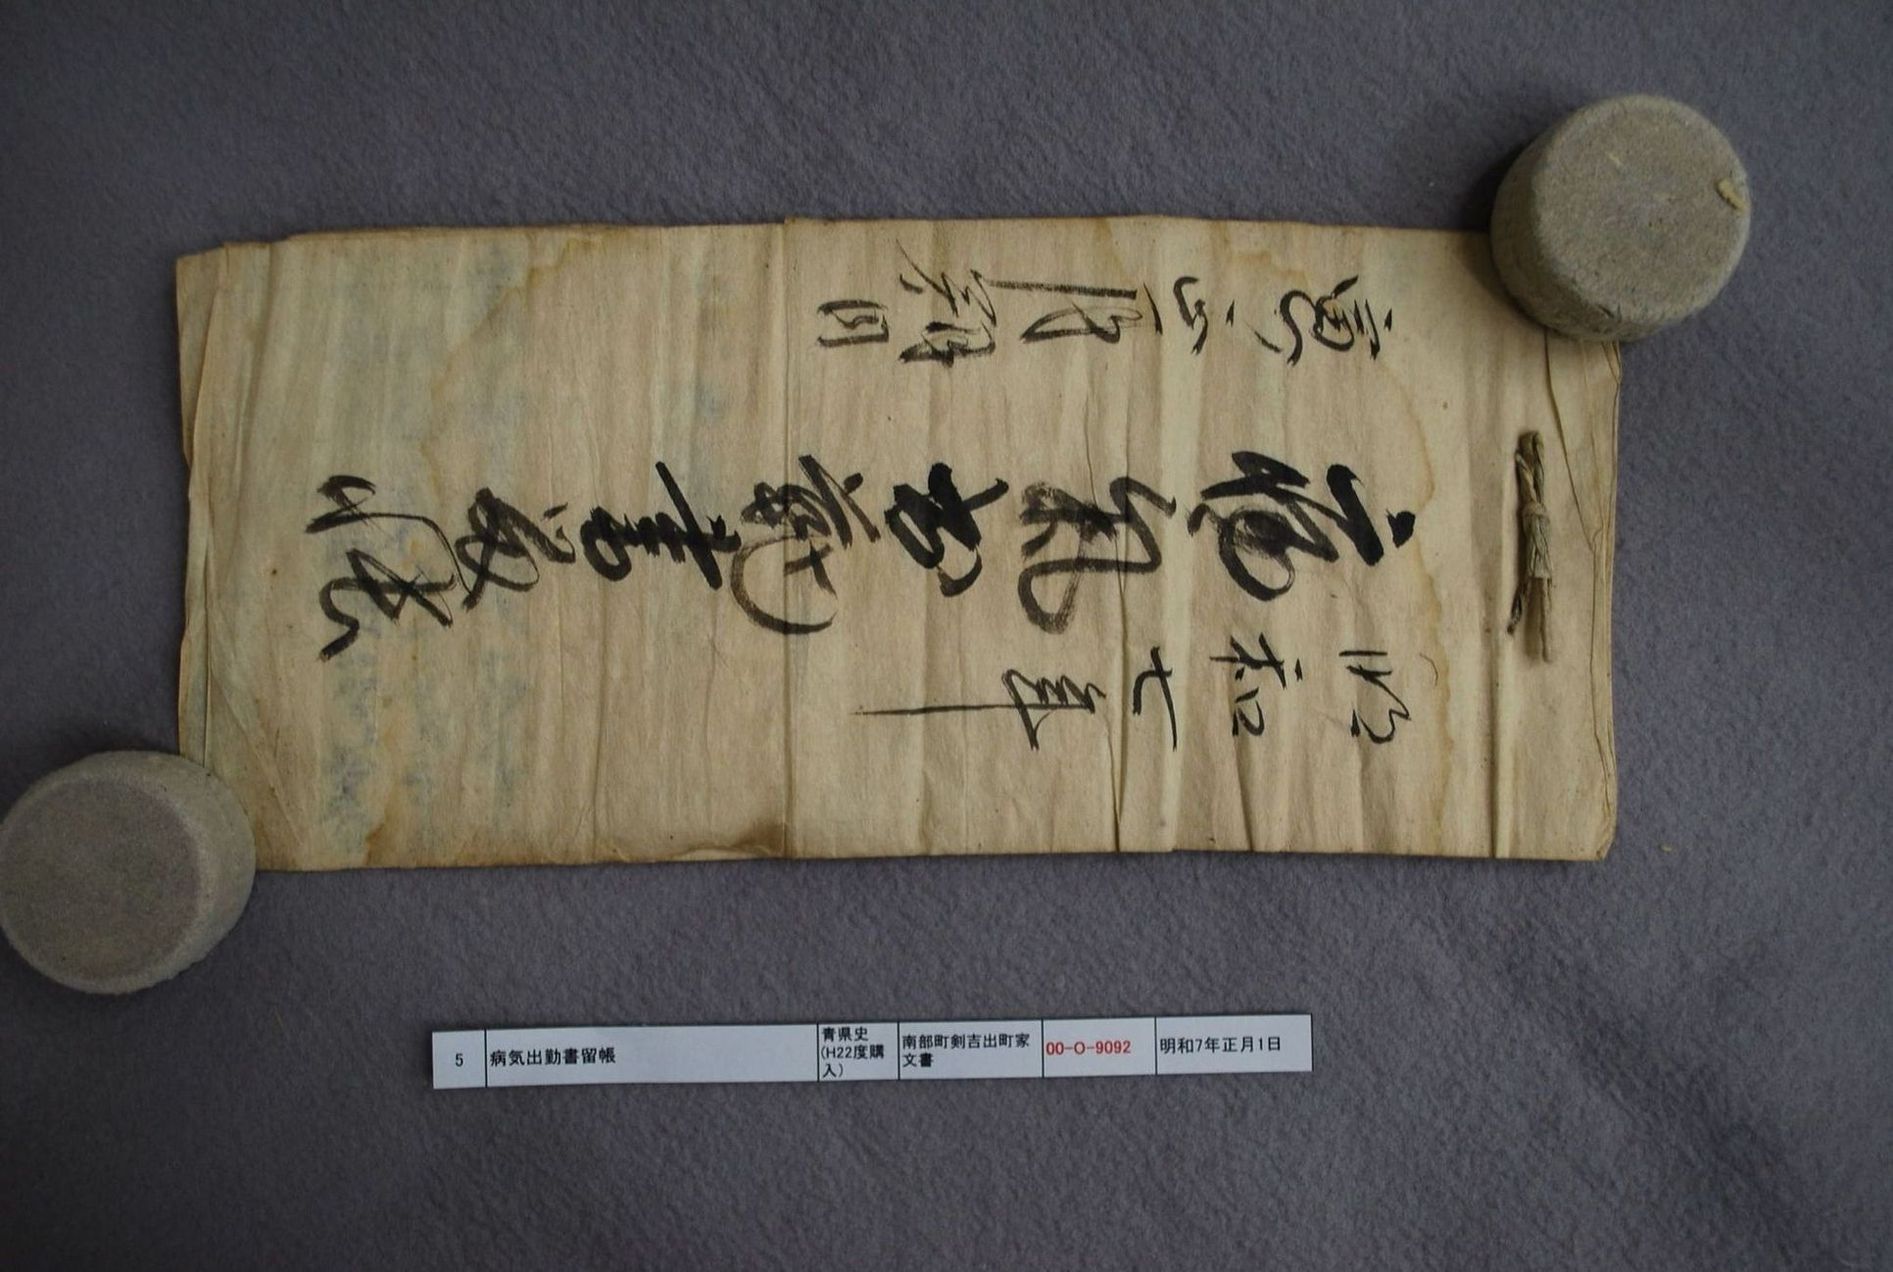 明和七年
病気出勤書留帳
寅正月朔日
5 病気出勤書留帳 青県史(H22度購入) 南部町剣吉出町家文書 00-O-9092 明和7年正月1日